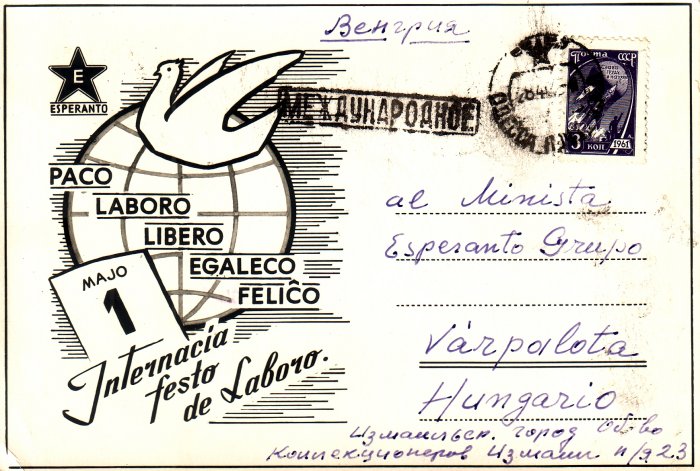 Венгрия
E
ESPERANTO
МЕЖДУНАРОДНОЕ
ПОЧТА СССР
3 КОП 1961
PACO
LABORO
LIBERO
EGALECO
FELIĈO
MAJO
1
Internacia
festo
de Laboro.
al Minista
Esperanto Grupo
Várpalota
Hungario
Измаильск. город. об-во
Коллекционеров Измаил п/я 23